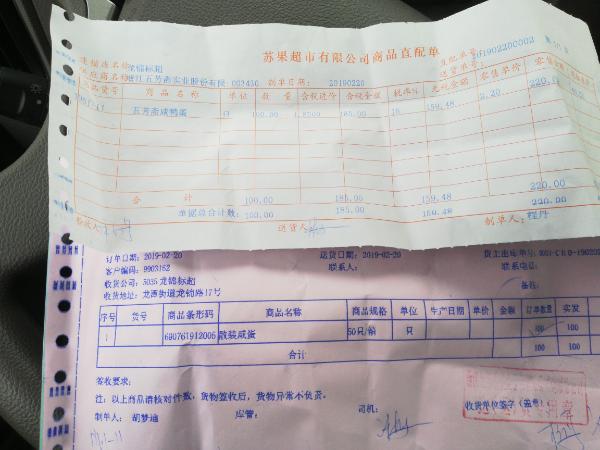 苏果超市有限公司商品直配单
连锁店名称 龙锦标超
供应商名称 浙江五芳斋实业股份有限 003430 制单日期: 20190220
商品名称 单位 数量 含税进价 含税金额 税率% 无税金额 零售单价
五芳斋咸鸭蛋 只 100.00 1.8500 185.00 16 159.48 2.20 220.00
合计 100.00 185.00 159.48 220.00
单据总合计数: 100.00 185.00 159.48 220.00
送货人: 制单人: 程丹
订单日期: 2019-02-20 送货日期: 2019-02-20
客户编码: 9903162 联系人: 联系电话:
收货公司: 5035 龙锦标超 备注:
收货地址: 龙潭街道龙锦路17号
序号 货号 商品条形码 商品名称 商品规格 单位 生产日期 单价 金额 订单数量 实发
1 690761912005 散装咸蛋 50只/箱 只 100 100
合计 100 100
签收要求:
注: 以上商品请核对件数, 货物签收后, 货物异常不负责。
制单人: 胡梦迪 库管: 司机: 收货单位签字(盖章):